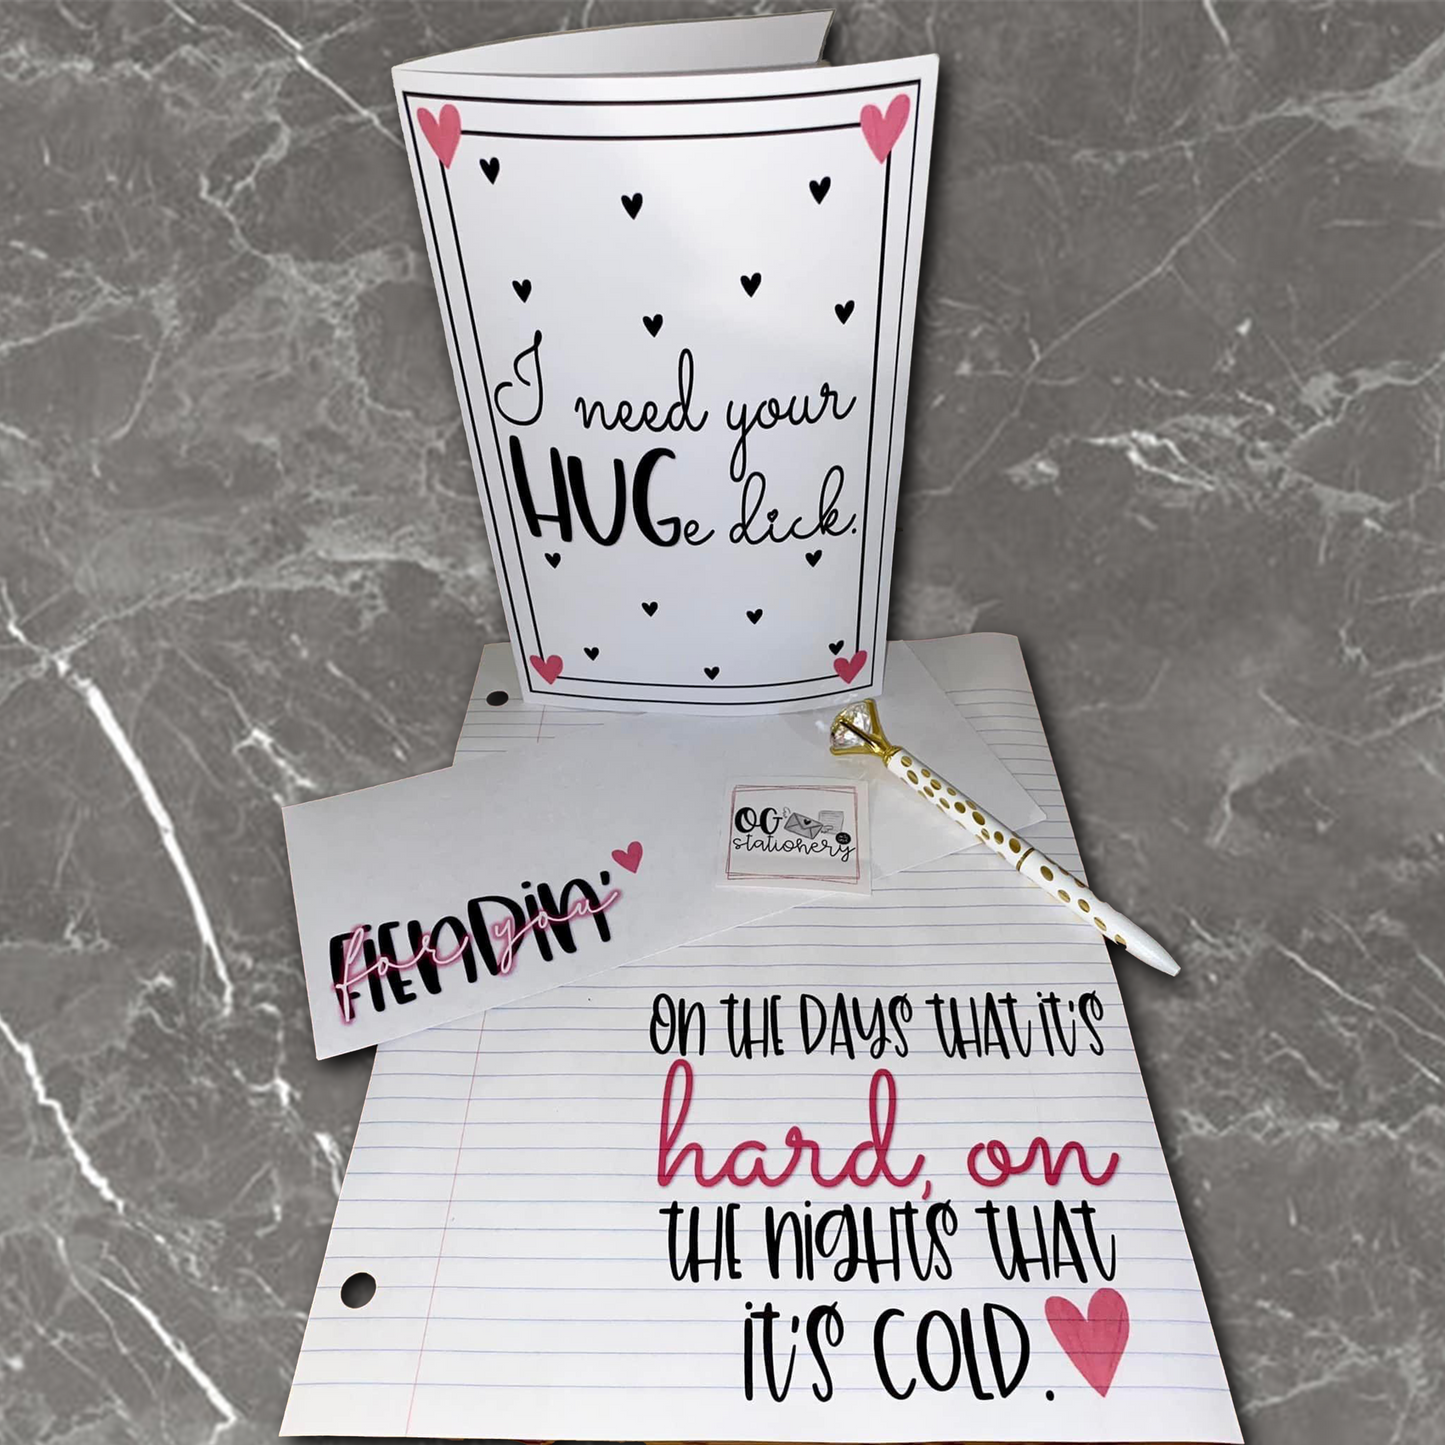 I need your
HUGe dick.
OG
stationery
FIENDIN'
for you
ON THE DAYS THAT IT'S
hard, on
THE NIGHTS THAT
IT'S COLD.